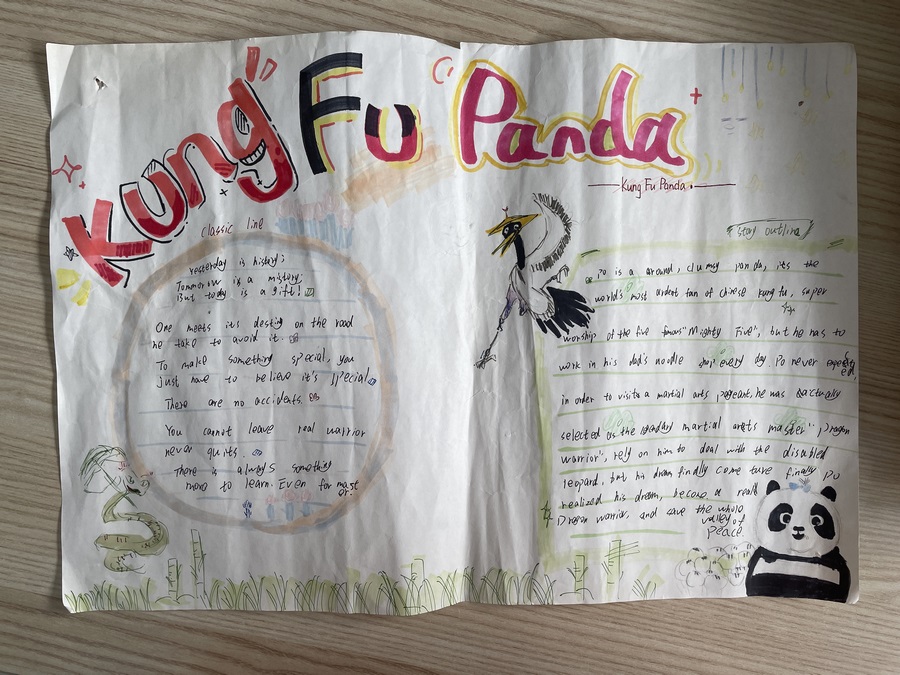 Kung Fu Panda
Kung Fu Panda
classic line
Yesterday is history;
Tommorow is a mistery;
But today is a gift!
One meets its destiny on the road
he take to avoid it.
To make something special, you
just have to believe it's special
There are no accidents.
You cannot leave real warrior
never quits.
There is always something
more to learn. Even for mast
er.
Stay outline
Po is a around, clumsy panda, its the
world's most ardent fan of Chinese kung fu, super
worship of the five famous "Mighty Five", but he has to
work in his dad's noodle shop every day. Po never expect
ed
in order to visits a martial arts pageant, he was actually
selected as the legendary martial arts master", Dragon
warrior", rely on him to deal with the disabled
leopard, but his dream findly come ture finally Po
realized his dream, become a reall
Dragon warrior, and save the whole
valley of
peace.